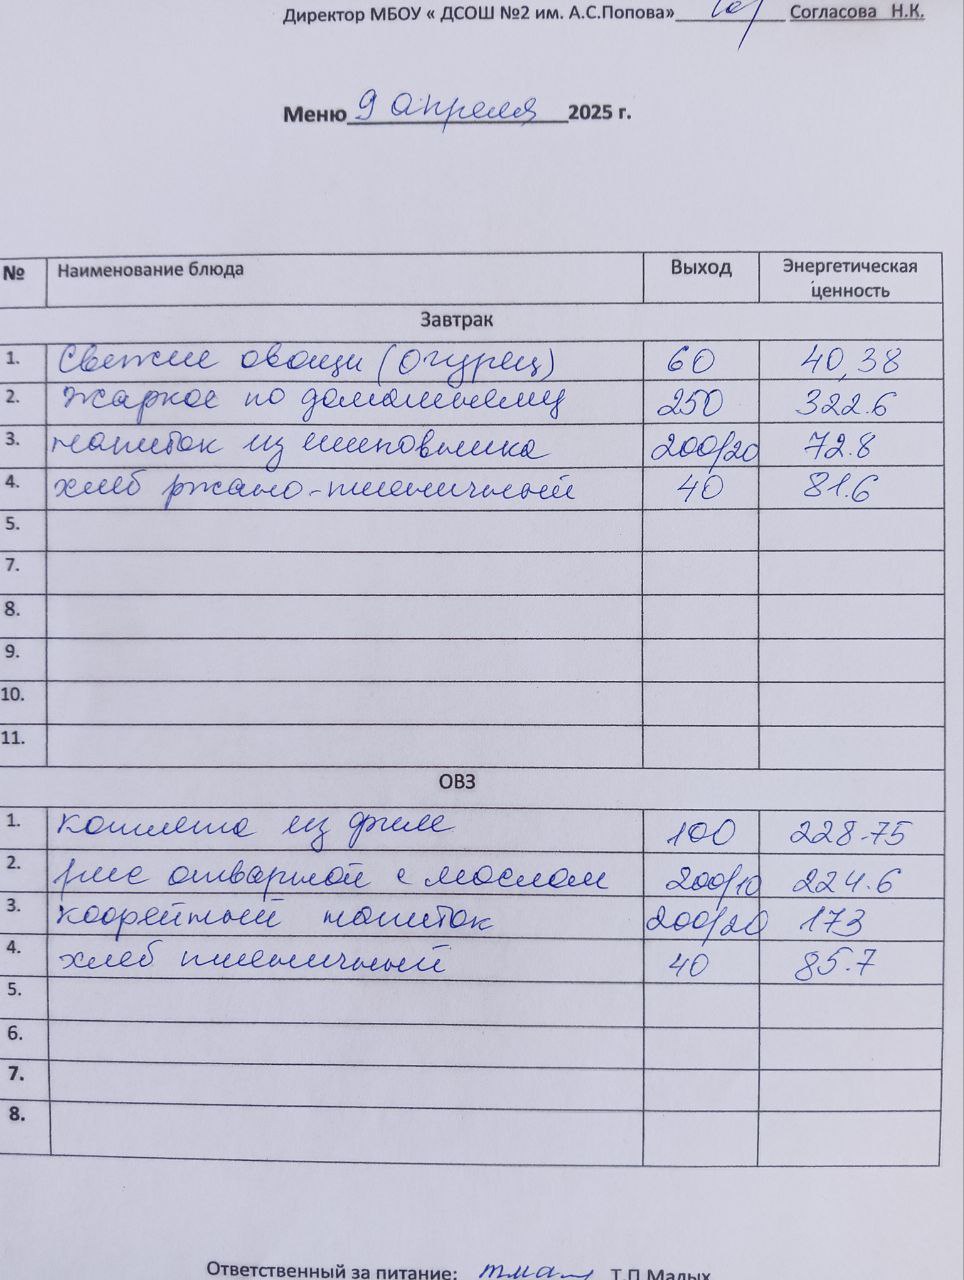 Директор МБОУ « ДСОШ №2 им. А.С.Попова»____________ Согласова Н.К.
Меню 9 апреля 2025 г.
№ Наименование блюда Выход Энергетическая ценность
Завтрак
1. Свежие овощи (огурец) 60 40,38
2. Жаркое по домашнему 250 322.6
3. напиток из шиповника 200/20 72.8
4. хлеб ржано-пшеничный 40 81.6
5.
7.
8.
9.
10.
11.
ОВЗ
1. котлета из филе 100 228.75
2. рис отварной с маслом 200/10 224.6
3. кофейный напиток 200/20 173
4. хлеб пшеничный 40 85.7
5.
6.
7.
8.
Ответственный за питание: Т.П.Малых